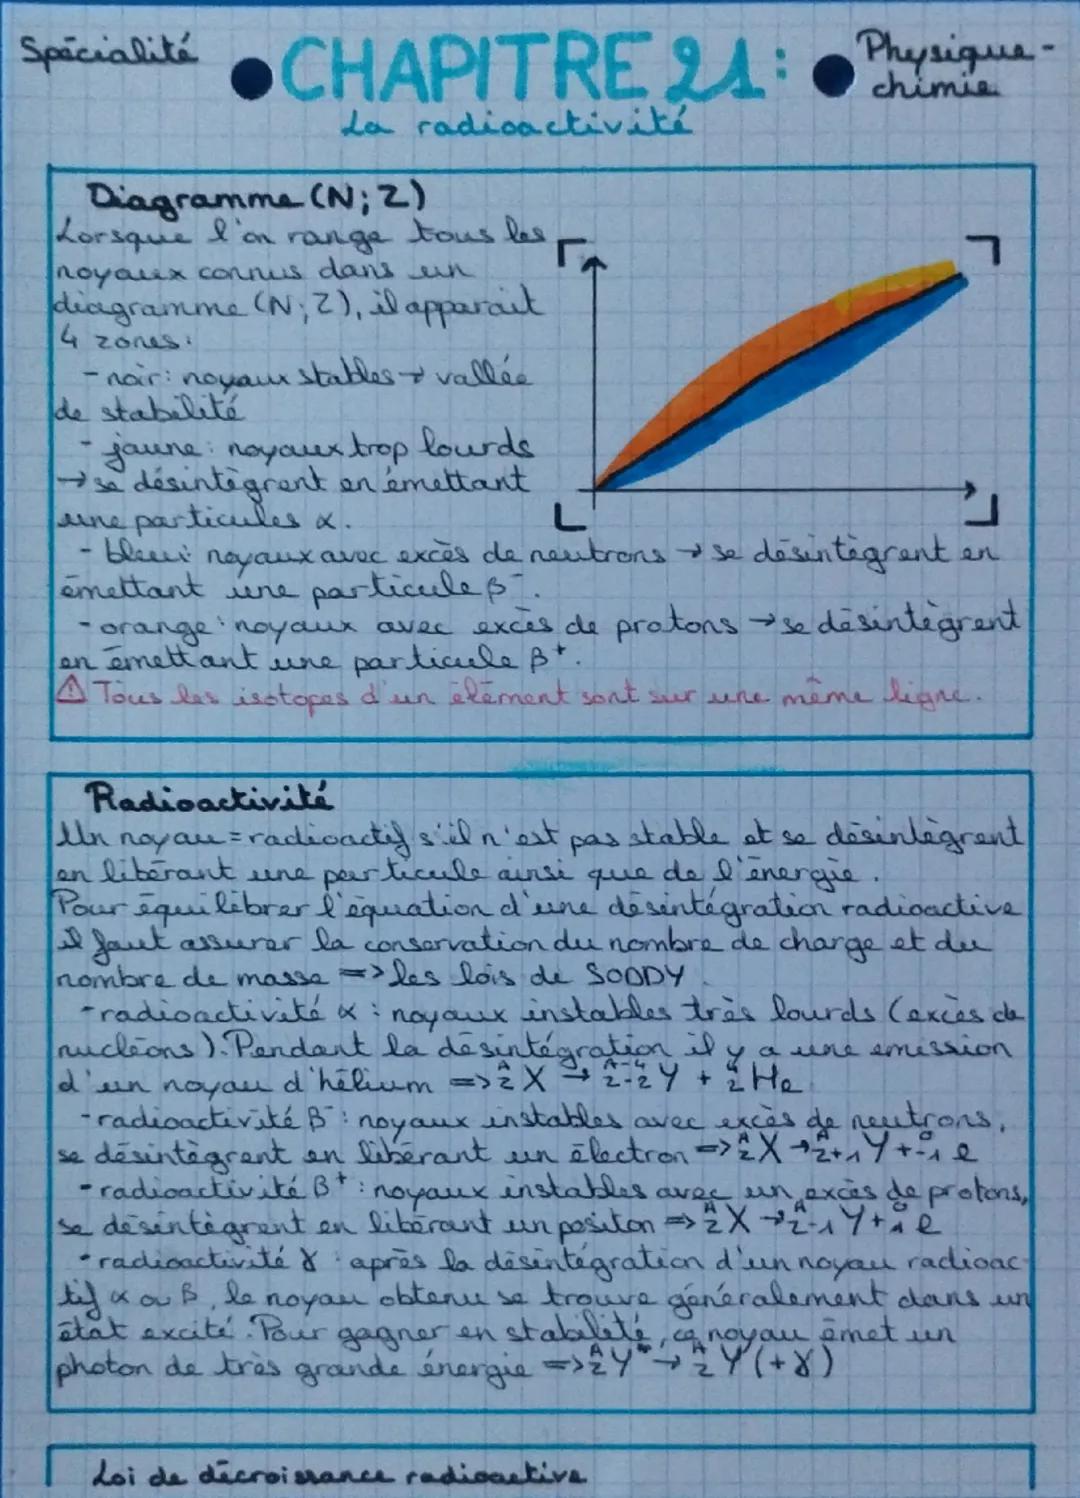 Spécialité
CHAPITRE 21:
Physique-
chimie
La radioactivité
Diagramme (N; Z)
Lorsque l'on range tous les
noyaux connus dans un
diagramme (N; Z), il apparait
4 zones:
- noir: noyaux stables → vallée
de stabilité
- jaune: noyaux trop lourds
→ se désintègrent en émettant
une particules α.
- bleu: noyaux avec excès de neutrons → se désintègrent en
émettant une particule β⁻.
- orange: noyaux avec excès de protons → se désintègrent
en émettant une particule β⁺.
⚠ Tous les isotopes d'un élément sont sur une même ligne.
Radioactivité
Un noyau = radioactif s'il n'est pas stable et se désintègrent
en libérant une particule ainsi que de l'énergie.
Pour équilibrer l'équation d'une désintégration radioactive
il faut assurer la conservation du nombre de charge et du
nombre de masse => les lois de SODDY.
- radioactivité α : noyaux instables très lourds (excès de
nucléons). Pendant la désintégration il y a une émission
d'un noyau d'hélium => ᴬ_Z X → ᴬ⁻⁴_Z-2 Y + ⁴₂He
- radioactivité β⁻: noyaux instables avec excès de neutrons,
se désintègrent en libérant un électron => ᴬ_Z X → ᴬ_Z+1 Y + ⁰₋₁e
- radioactivité β⁺: noyaux instables avec un excès de protons,
se désintègrent en libérant un positon => ᴬ_Z X → ᴬ_Z-1 Y + ⁰₁e
- radioactivité γ : après la désintégration d'un noyau radioac-
tif α ou β, le noyau obtenu se trouve généralement dans un
état excité. Pour gagner en stabilité, ce noyau émet un
photon de très grande énergie => ᴬ_Z Y* → ᴬ_Z Y (+ γ)
Loi de décroissance radioactive